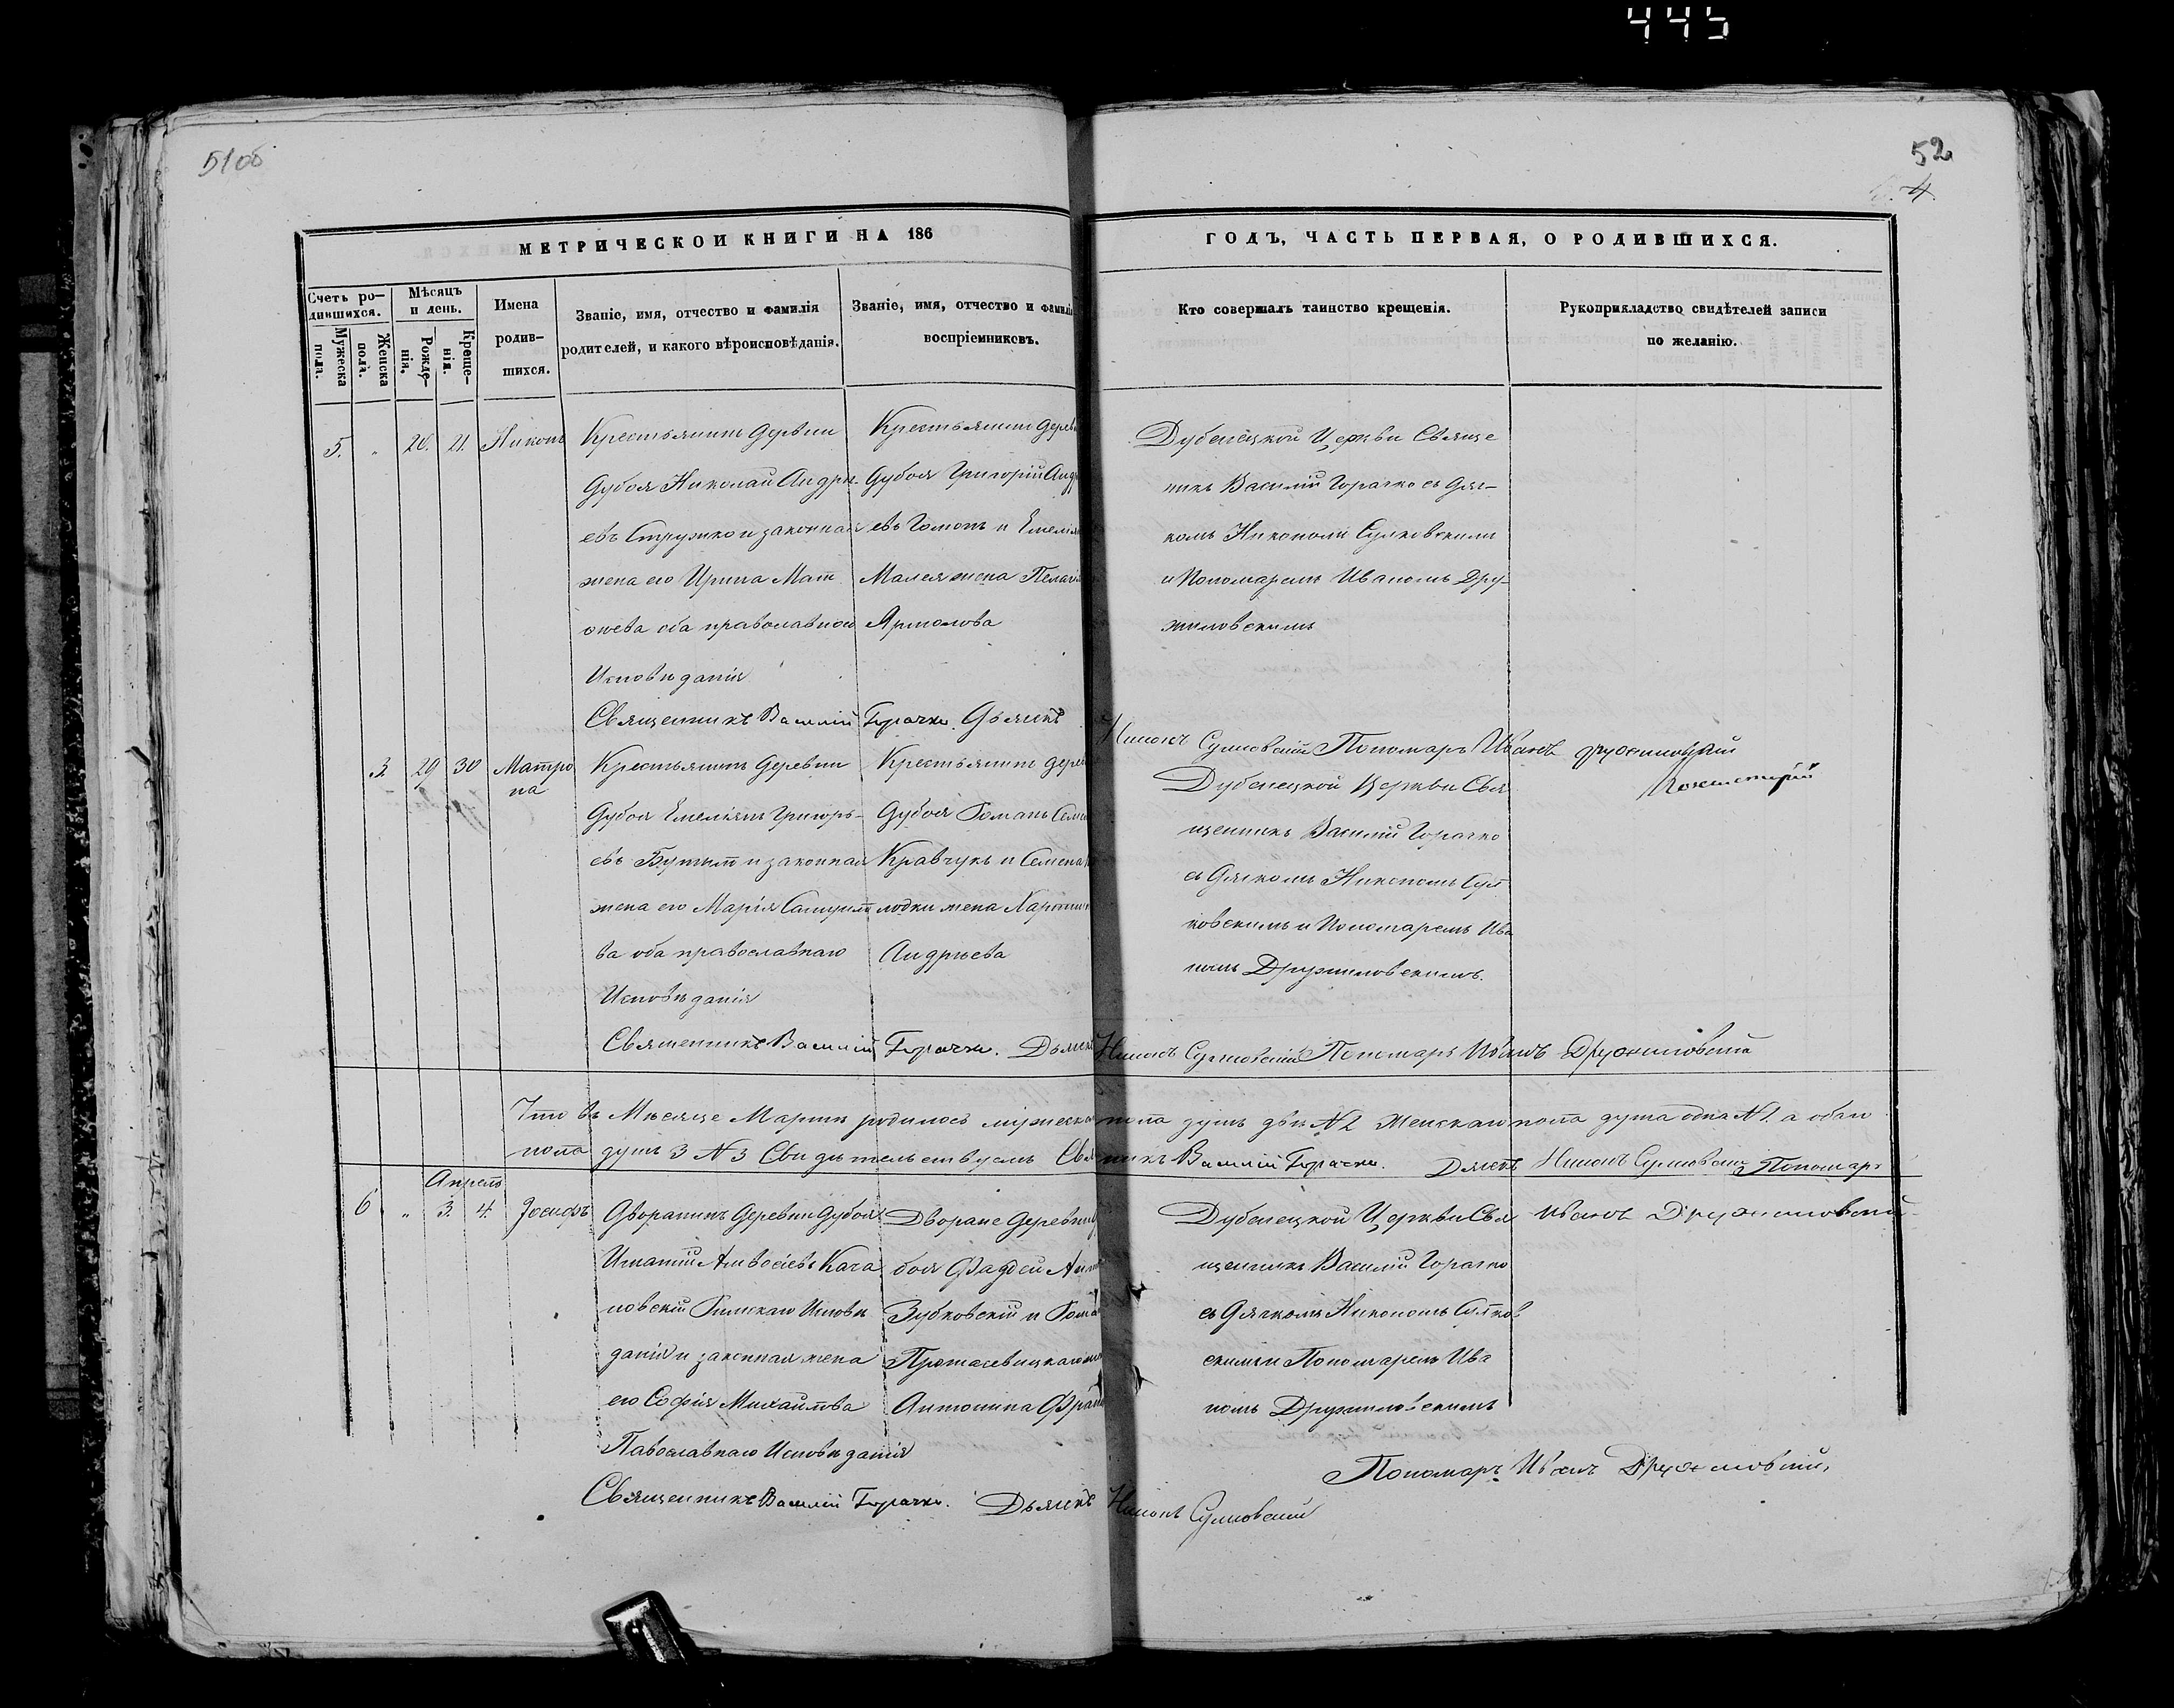 445
51об
52
4
МЕТРИЧЕСКОИ КНИГИ НА 186
ГОДЪ, ЧАСТЬ ПЕРВАЯ, О РОДИВШИХСЯ.
Счетъ ро-
дившихся.
Мужеска пола.
Женска пола.
Мѣсяцъ
и день.
Рожде-
нія.
Креще-
нія.
Имена
родив-
шихся.
Званіе, имя, отчество и фамилія
родителей, и какого вѣроисповѣданія.
Званіе, имя, отчество и фамилі
воспріемниковъ.
Кто совершалъ таинство крещенія.
Рукоприкладство свидѣтелей записи
по желанію.
5. " 20. 21. Никонъ
Крестьянинъ деревни
Дубоя Николай Андре-
евъ Стружко и законная
жена его Ирина Мат
ѳеева оба православнои
Исповѣданія
Крестьянинъ дерев
Дубоя Григорій Андр
евъ Гомонъ и Емелья
Малея жена Пелагія
Ярмолова
Дубенецкой Церкви Свяще
никъ Василій Горачко съ Дяч-
комъ Никономъ Сулковскимъ
и Пономаремъ Иваномъ Дру-
жиловскимъ
Священникъ Василій Горачко. Дьячекъ Никонъ Сулковскій Пономарь Иванъ Дружиловскій
3. 29 30 Матро
на
Крестьянинъ деревни
Дубоя Емеліянъ Григорь-
евъ и законная
жена его Марія Самуило
ва оба православнаго
Исповѣданія
Крестьянинъ дерев
Дубоя Романъ Семе
Кравчукъ и Семена
жена
Андреева
Дубенецкой Церкви Свя
щенникъ Василій Горачко
съ Дячкомъ Никономъ Сул
ковскимъ и Пономаремъ Ива
номъ Дружиловскимъ.
Священникъ Василій Горачко. Дьячекъ Никонъ Сулковскій Пономарь Иванъ Дружиловскій
Что въ Мѣсяце Мартѣ родилось мужеска пола душъ двѣ N 2 Женскаго пола душа одна N 1. а обаго
пола душъ 3 N 3 Свидѣтельствуемъ Василій Горачко. Дьячекъ Никонъ Сулковскій Пономарь
Иванъ Дружиловскій
Апрель
6 " 3. 4. Іосифъ
Дворанинъ Деревни Дубоя
Игнатій Амвосіевъ Кача
новскій Римскаго Исповѣ
данія и законная жена
его Софія Михайлова
Павославнаго Исповѣданія
Дворане Деревни Ду
боя Фадѣй
Зубковскій и Рома
Антонина Фран
Дубенецкой Церкви Свя
щенникъ Василій Горачко
съ Дячкомъ Никономъ Сулков
скимъ и Пономаремъ Ива
номъ Дружиловскимъ
Пономарь Иванъ Дружиловскій,
Священникъ Василій Горачко. Дьячекъ Никонъ Сулковскій